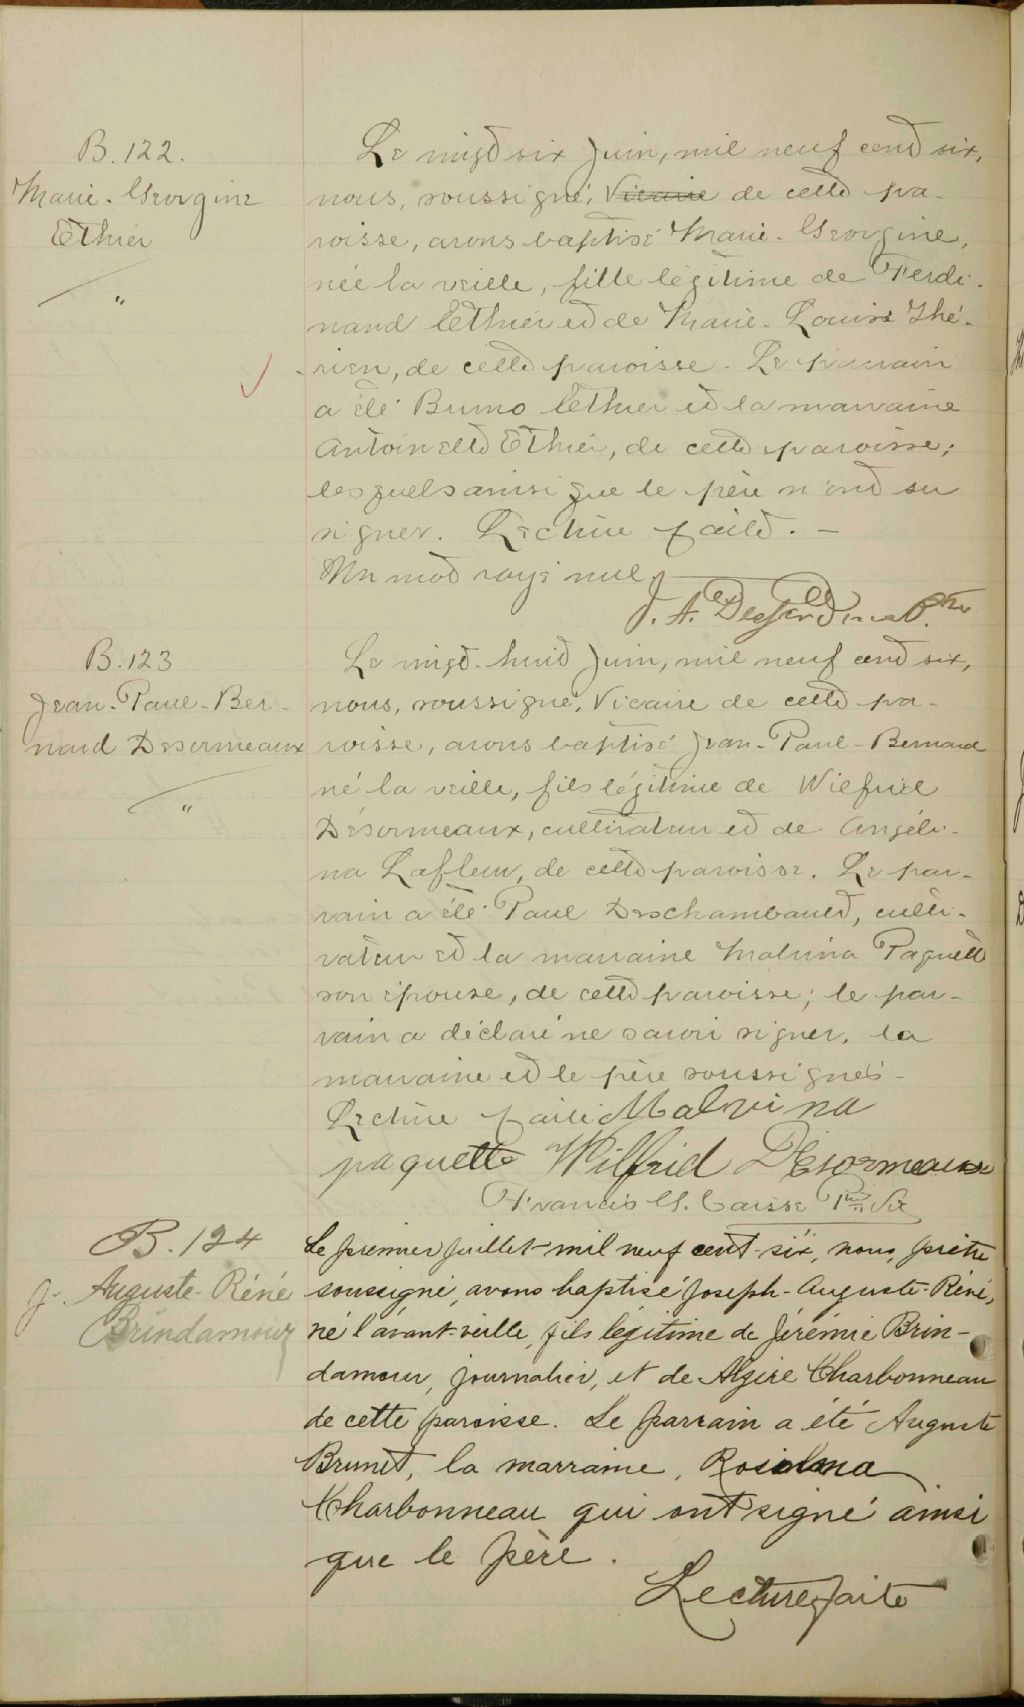 B. 122.
Marie-Georgine
Ethier
"
Le vingt six Juin, mil neuf cent six,
nous, soussigné, Vicaire de cette pa-
roisse, avons baptisé Marie-Georgine,
née la veille, fille légitime de Ferdi-
nand Ethier et de Marie-Louise Thé-
rien, de cette paroisse. Le parrain
a été Bruno Ethier et la marraine
Antoinette Ethier, de cette paroisse;
lesquels ainsi que le père n'ont su
signer. Lecture faite. —
Un mot rayé nul.
J. A. Desjardins Ptre
B. 123
Jean-Paul-Ber-
nard Desormeaux
"
Le vingt-huit Juin, mil neuf cent six,
nous, soussigné, Vicaire de cette pa-
roisse, avons baptisé Jean-Paul-Bernard
né la veille, fils légitime de Wilfrid
Désormeaux, cultivateur et de Angéli-
na Lafleur, de cette paroisse. Le par-
rain a été Paul Deschambault, culti-
vateur et la marraine Malvina Paquette
son épouse, de cette paroisse; le par-
rain a déclaré ne savoir signer, la
marraine et le père soussignés-
Lecture faite Malvina
paquette Wilfrid Désormeaux
Francis Caisse Ptre Vic
B. 124
J. Auguste-Réné
Brindamour
Le premier juillet mil neuf cent-six, nous, prêtre
soussigné, avons baptisé Joseph-Auguste-Réné,
né l'avant-veille, fils légitime de Jérémie Brin-
damour, journalier, et de Algire Charbonneau
de cette paroisse. Le parrain a été Auguste
Brunet, la marraine, Rosalma
Charbonneau qui ont signé ainsi
que le père.
Lecture faite